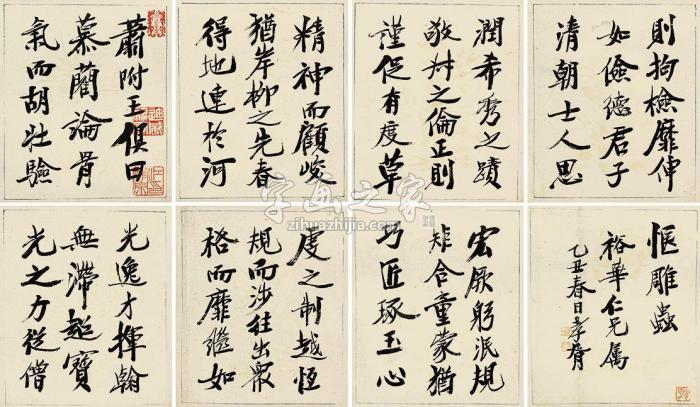 蕭附王俱曰
慕藺論骨
氣而胡壯驗
精神而顧峻
猶岸柳之先春
得地連於河
潤希秀之蹟
敬艸之倫正則
謹促有度草
則拘檢靡伸
如儉德君子
清朝士人思
光逸才揮翰
無滯超寶
光之力從僧
虔之制越恆
規而涉往出眾
格而靡繼如
宏厥躬泯規
矩合童蒙猶
巧匠琢玉心
愜雕蟲
裕華仁兄属
乙丑春日孝胥
字画之家
zihuazhijia.com